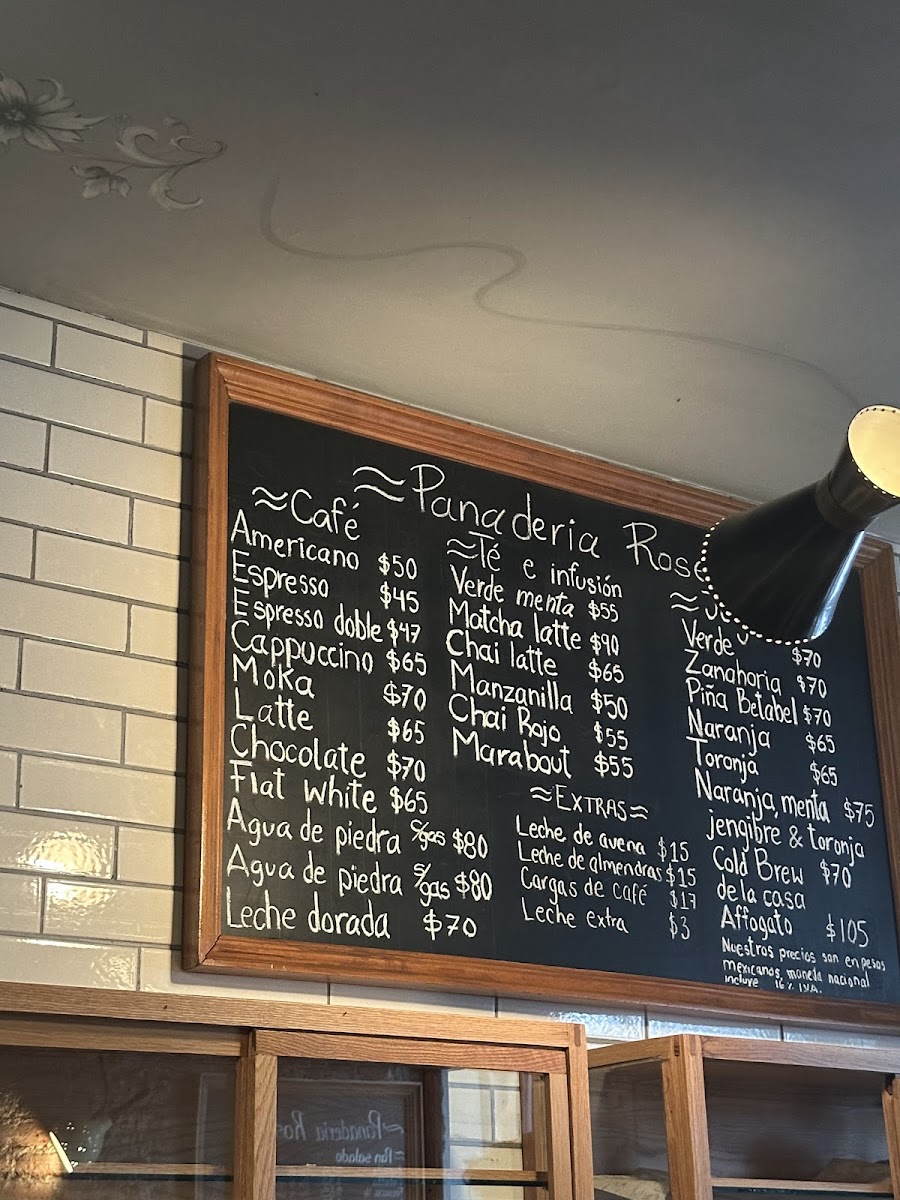 ≈ Panaderia Rose
≈Café
Americano $50
Espresso $45
Espresso doble $47
Cappuccino $65
Moka $70
Latte $65
Chocolate $70
Flat white $65
Agua de piedra c/gas $80
Agua de piedra s/gas $80
Leche dorada $70
≈Té e infusión
Verde menta $55
Matcha latte $90
Chai latte $65
Manzanilla $50
Chai Rojo $55
Marabout $55
≈EXTRAS≈
Leche de avena $15
Leche de almendras $15
Cargas de café $17
Leche extra $3
Verde $70
Zanahoria $70
Piña Betabel $70
Naranja $65
Toronja $65
Naranja, menta $75
jengibre & toronja
Cold Brew $70
de la casa
Affogato $105
Nuestros precios son en pesos
mexicanos, moneda nacional
incluye 16% IVA.
≈Panaderia Ros
≈Pan salado